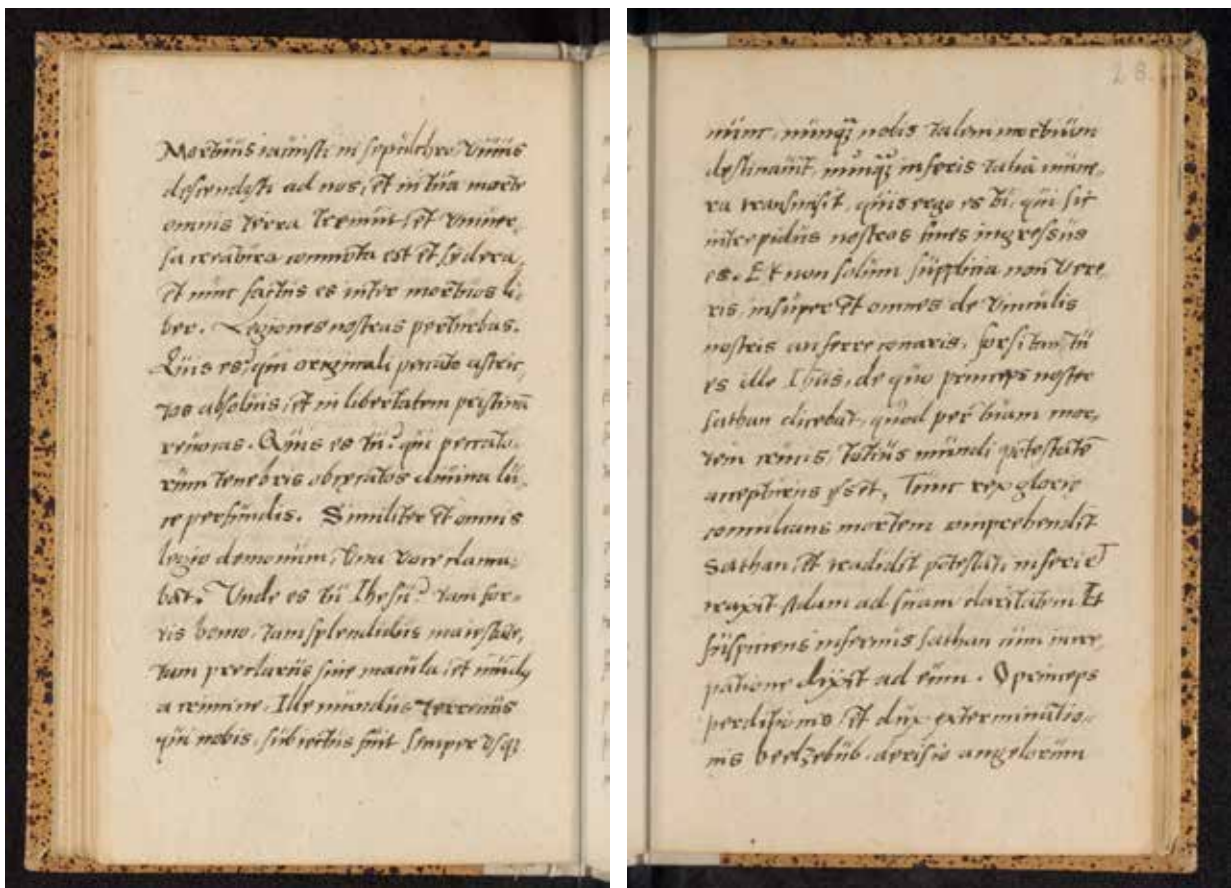 Mortuus iacuisti in sepulchro, viuus
descendisti ad nos, et in tua morte
omnis terra tremuit, et vniuer,
sa creatura commota est et sydera,
et nunc factus es inter mortuos li,
ber. Legiones nostras perturbas.
Quis es? qui originali peccato astric,
tos absoluis, et in libertatem pristinā
reuocas. Quis es tu? qui peccato,
rum tenebris obcecatos diuina lu,
ce perfundis. Similiter et omnis
legio demonum, vna voce clama,
bat. Unde es tu Ihesu? tam for,
tis homo, tam splendidus maiestate,
tam preclarus sine macula, et mundus
a crimine. Ille mundus terrenus
qui nobis, subiectus fuit semper vsqz
28.
nunc, nunqz nobis talem mortuum
destinauit, nunqz inferis talia mune,
ra transmisit, quis ergo es tu, qui sic
intrepidus nostros fines ingressus
es. Et non solum supplicia non vere,
ris, insuper et omnes de vinculis
nostris auferre conaris, forsitan tu
es ille Ihūs, de quo princeps noster
sathan dicebat, quod per tuam mor,
tem crucis, totius mundi potestatē
accepturus esset, Tunc rex glorie
conculcans mortem comprehendit
Sathan, et tradidit potestati inferi et
traxit Adam ad suam claritatem Et
suspiciens infernus sathan cum incre,
patione dixit ad eum. O princeps
perditionis, et dux exterminatio,
nis beelzebub, derisio angelorum